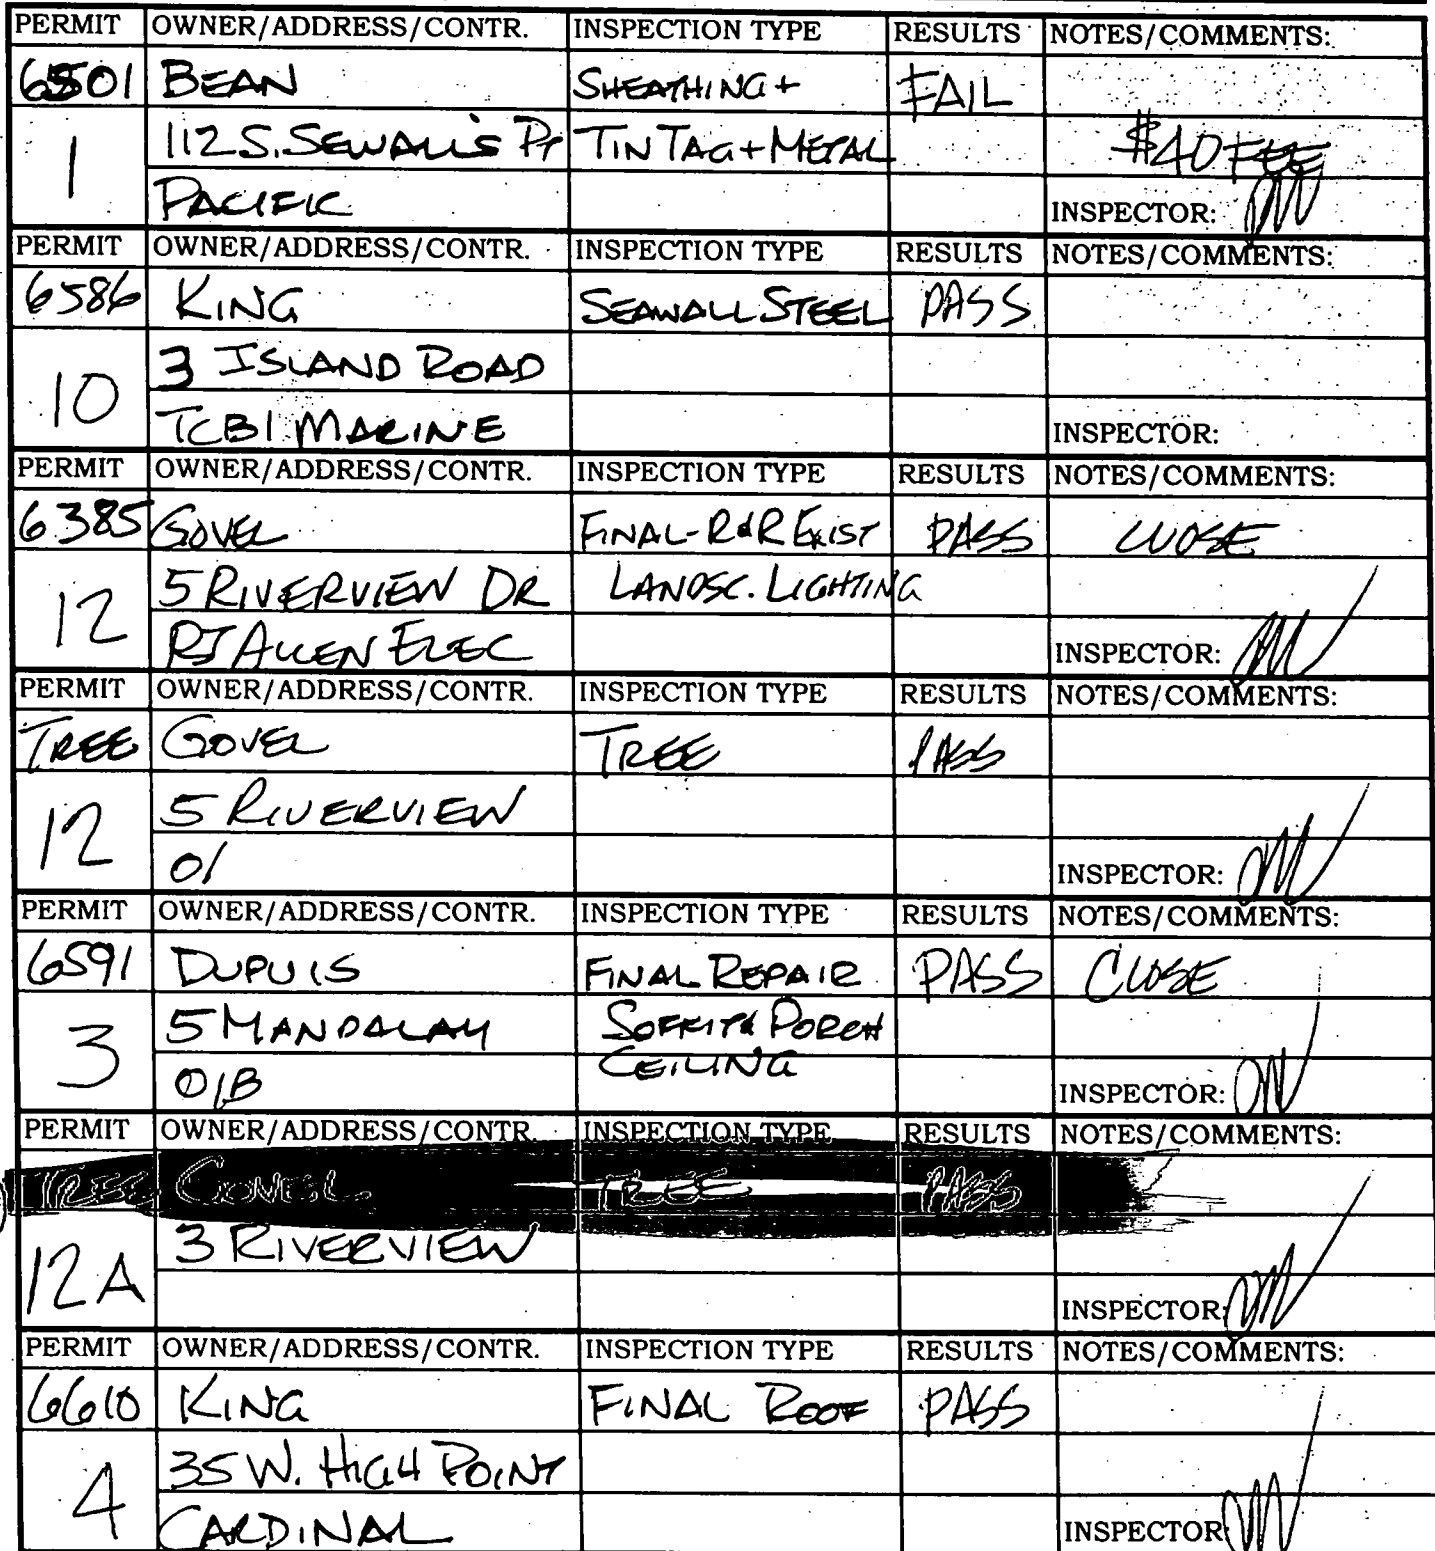 PERMIT OWNER/ADDRESS/CONTR. INSPECTION TYPE RESULTS NOTES/COMMENTS:
6501 BEAN SHEATHING + FAIL
1 112 S. SEWALL'S PT TIN TAG + METAL $40 FEE
PACIFIC INSPECTOR:
PERMIT OWNER/ADDRESS/CONTR. INSPECTION TYPE RESULTS NOTES/COMMENTS:
6586 KING SEAWALL STEEL PASS
10 3 ISLAND ROAD
TCBI MARINE INSPECTOR:
PERMIT OWNER/ADDRESS/CONTR. INSPECTION TYPE RESULTS NOTES/COMMENTS:
6385 GOVEL FINAL-R&R EXIST PASS CLOSE
12 5 RIVERVIEW DR LANDSC. LIGHTING
RJ ALLEN ELEC INSPECTOR:
PERMIT OWNER/ADDRESS/CONTR. INSPECTION TYPE RESULTS NOTES/COMMENTS:
TREE GOVEL TREE PASS
12 5 RIVERVIEW
O/ INSPECTOR:
PERMIT OWNER/ADDRESS/CONTR. INSPECTION TYPE RESULTS NOTES/COMMENTS:
6591 DUPUIS FINAL REPAIR PASS CLOSE
3 5 MANDALAY SOFFIT & PORCH
CEILING
O/B INSPECTOR:
PERMIT OWNER/ADDRESS/CONTR. INSPECTION TYPE RESULTS NOTES/COMMENTS:
TREE GOVEL TREE PASS
12A 3 RIVERVIEW
INSPECTOR:
PERMIT OWNER/ADDRESS/CONTR. INSPECTION TYPE RESULTS NOTES/COMMENTS:
6610 KING FINAL ROOF PASS
4 35 W. HIGH POINT
CARDINAL INSPECTOR: